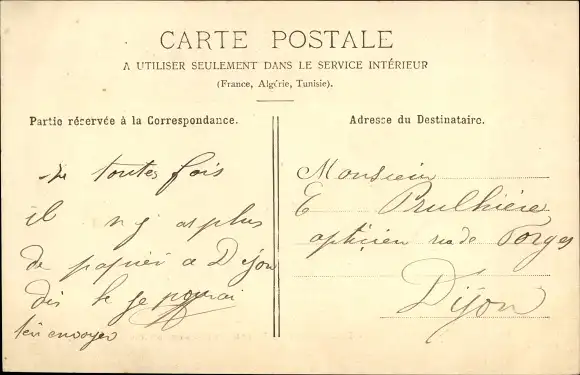 CARTE POSTALE
A UTILISER SEULEMENT DANS LE SERVICE INTÉRIEUR
(France, Algérie, Tunisie).
Partie réservée à la Correspondance.
toutes fois
il n y as plus
de papier a Dijon
dis le je pourai
t'en envoyer
Adresse du Destinataire.
Monsieur
E Brulhière
opticien rue de Forges
Dijon